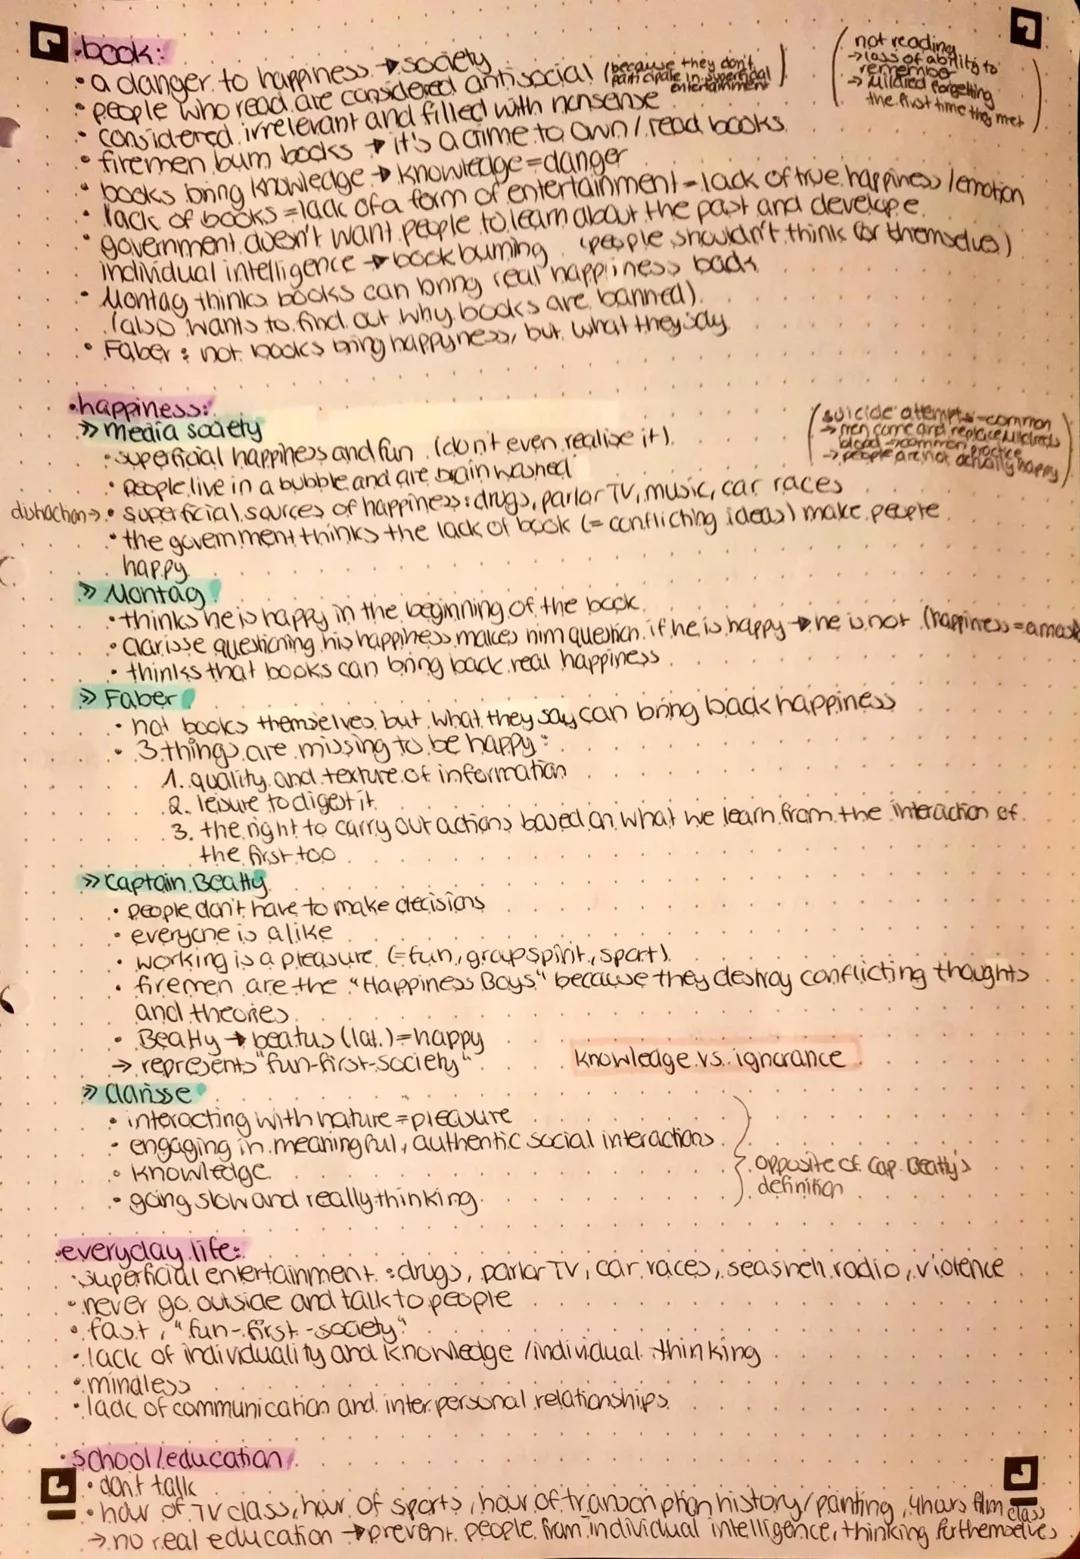 • book:
• a danger to happiness → society
• people who read are considered antisocial (because they don't participate in superficial entertainment)
(not reading
→ loss of ability to
remember
→ Mildred forgetting
the first time they met)
• considered irrelevant and filled with nonsense
• firemen burn books → it's a crime to own / read books
• books bring knowledge → knowledge = danger
• lack of books = lack of a form of entertainment - lack of true happiness / emotion
• government doesn't want people to learn about the past and develope
individual intelligence → book burning (people shouldn't think for themselves)
• Montag thinks books can bring real happiness back
(also wants to find out why books are banned)
• Faber: not books bring happyness, but what they say
• happiness:
» media society
• superficial happiness and fun (don't even realise it)
(suicide attempts - common
→ men come and replace Mildreds
blood → common practice
→ people are not actually happy)
• people live in a bubble and are brainwashed
distraction → • superficial sources of happiness: drugs, parlor TV, music, car races
• the government thinks the lack of book (= conflicting ideas) make people
happy
» Montag
• thinks he is happy in the beginning of the book
• Clarisse questioning his happiness makes him question if he is happy → he is not (happiness = a mask
• thinks that books can bring back real happiness
» Faber
• not books themselves but what they say can bring back happiness
• 3 things are missing to be happy:
1. quality and texture of information
2. leisure to digest it
3. the right to carry out actions based on what we learn from the interaction of
the first too
» Captain Beatty
• people don't have to make decisions
• everyone is alike
• working is a pleasure (= fun, group spirit, sport)
• firemen are the "Happiness Boys" because they destroy conflicting thoughts
and theories
• Beatty → beatus (lat.) = happy
→ represents "fun-first-society"
knowledge vs. ignorance
» Clarisse
• interacting with nature = pleasure
• engaging in meaningful, authentic social interactions
• knowledge
• going slow and really thinking
opposite of Cap. Beatty's
definition
• everyday life:
• superficial entertainment: drugs, parlor TV, car races, seashell radio, violence
• never go outside and talk to people
• fast, "fun-first-society"
• lack of individuality and knowledge / individual thinking
• mindless
• lack of communication and interpersonal relationships
• school / education
• don't talk
• hour of TV class, hour of sports, hour of transcription history / painting, 4 hours film class
→ no real education → prevent people from individual intelligence, thinking for themselves